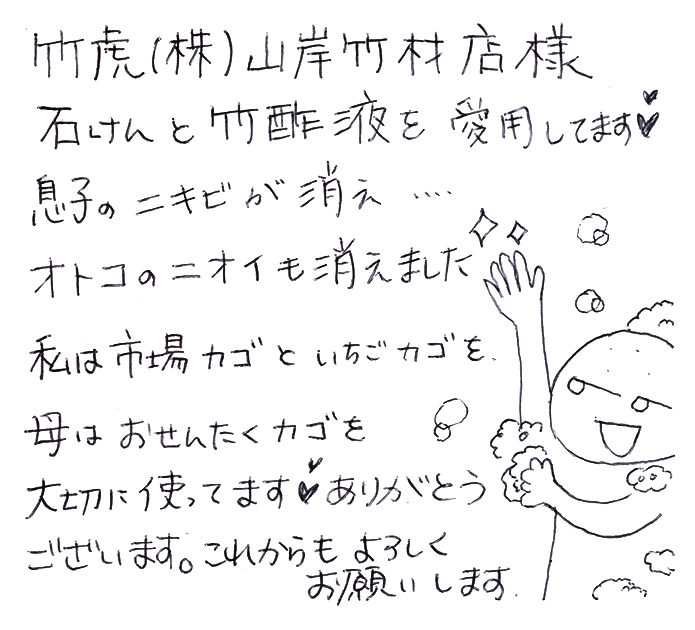 竹虎(株)山岸竹材店様
石けんと竹酢液を愛用してます
息子のニキビが消え‥‥
オトコのニオイも消えました
私は市場カゴといちごカゴを、
母はおせんたくカゴを
大切に使ってます ありがとう
ございます。これからもよろしく
お願いします.